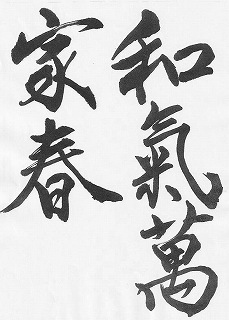 和氣萬
家春